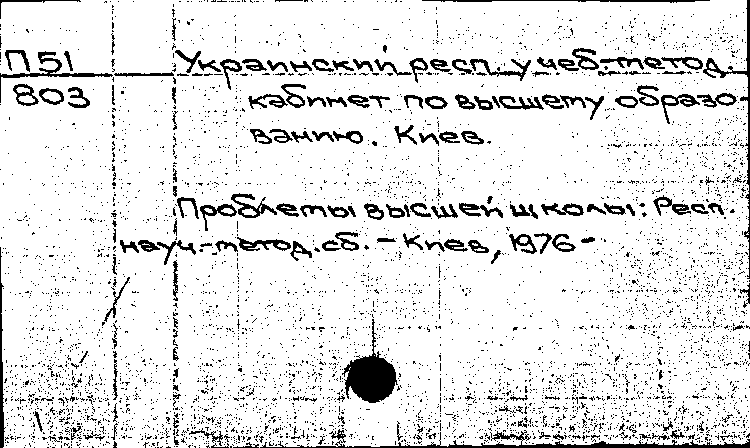 П51 Украинский респ. учеб.-метод.
803 кабинет по высшему образо-
ванию. Киев.
Проблемы высшей школы: Респ.
науч.-метод. сб. – Киев, 1976 -